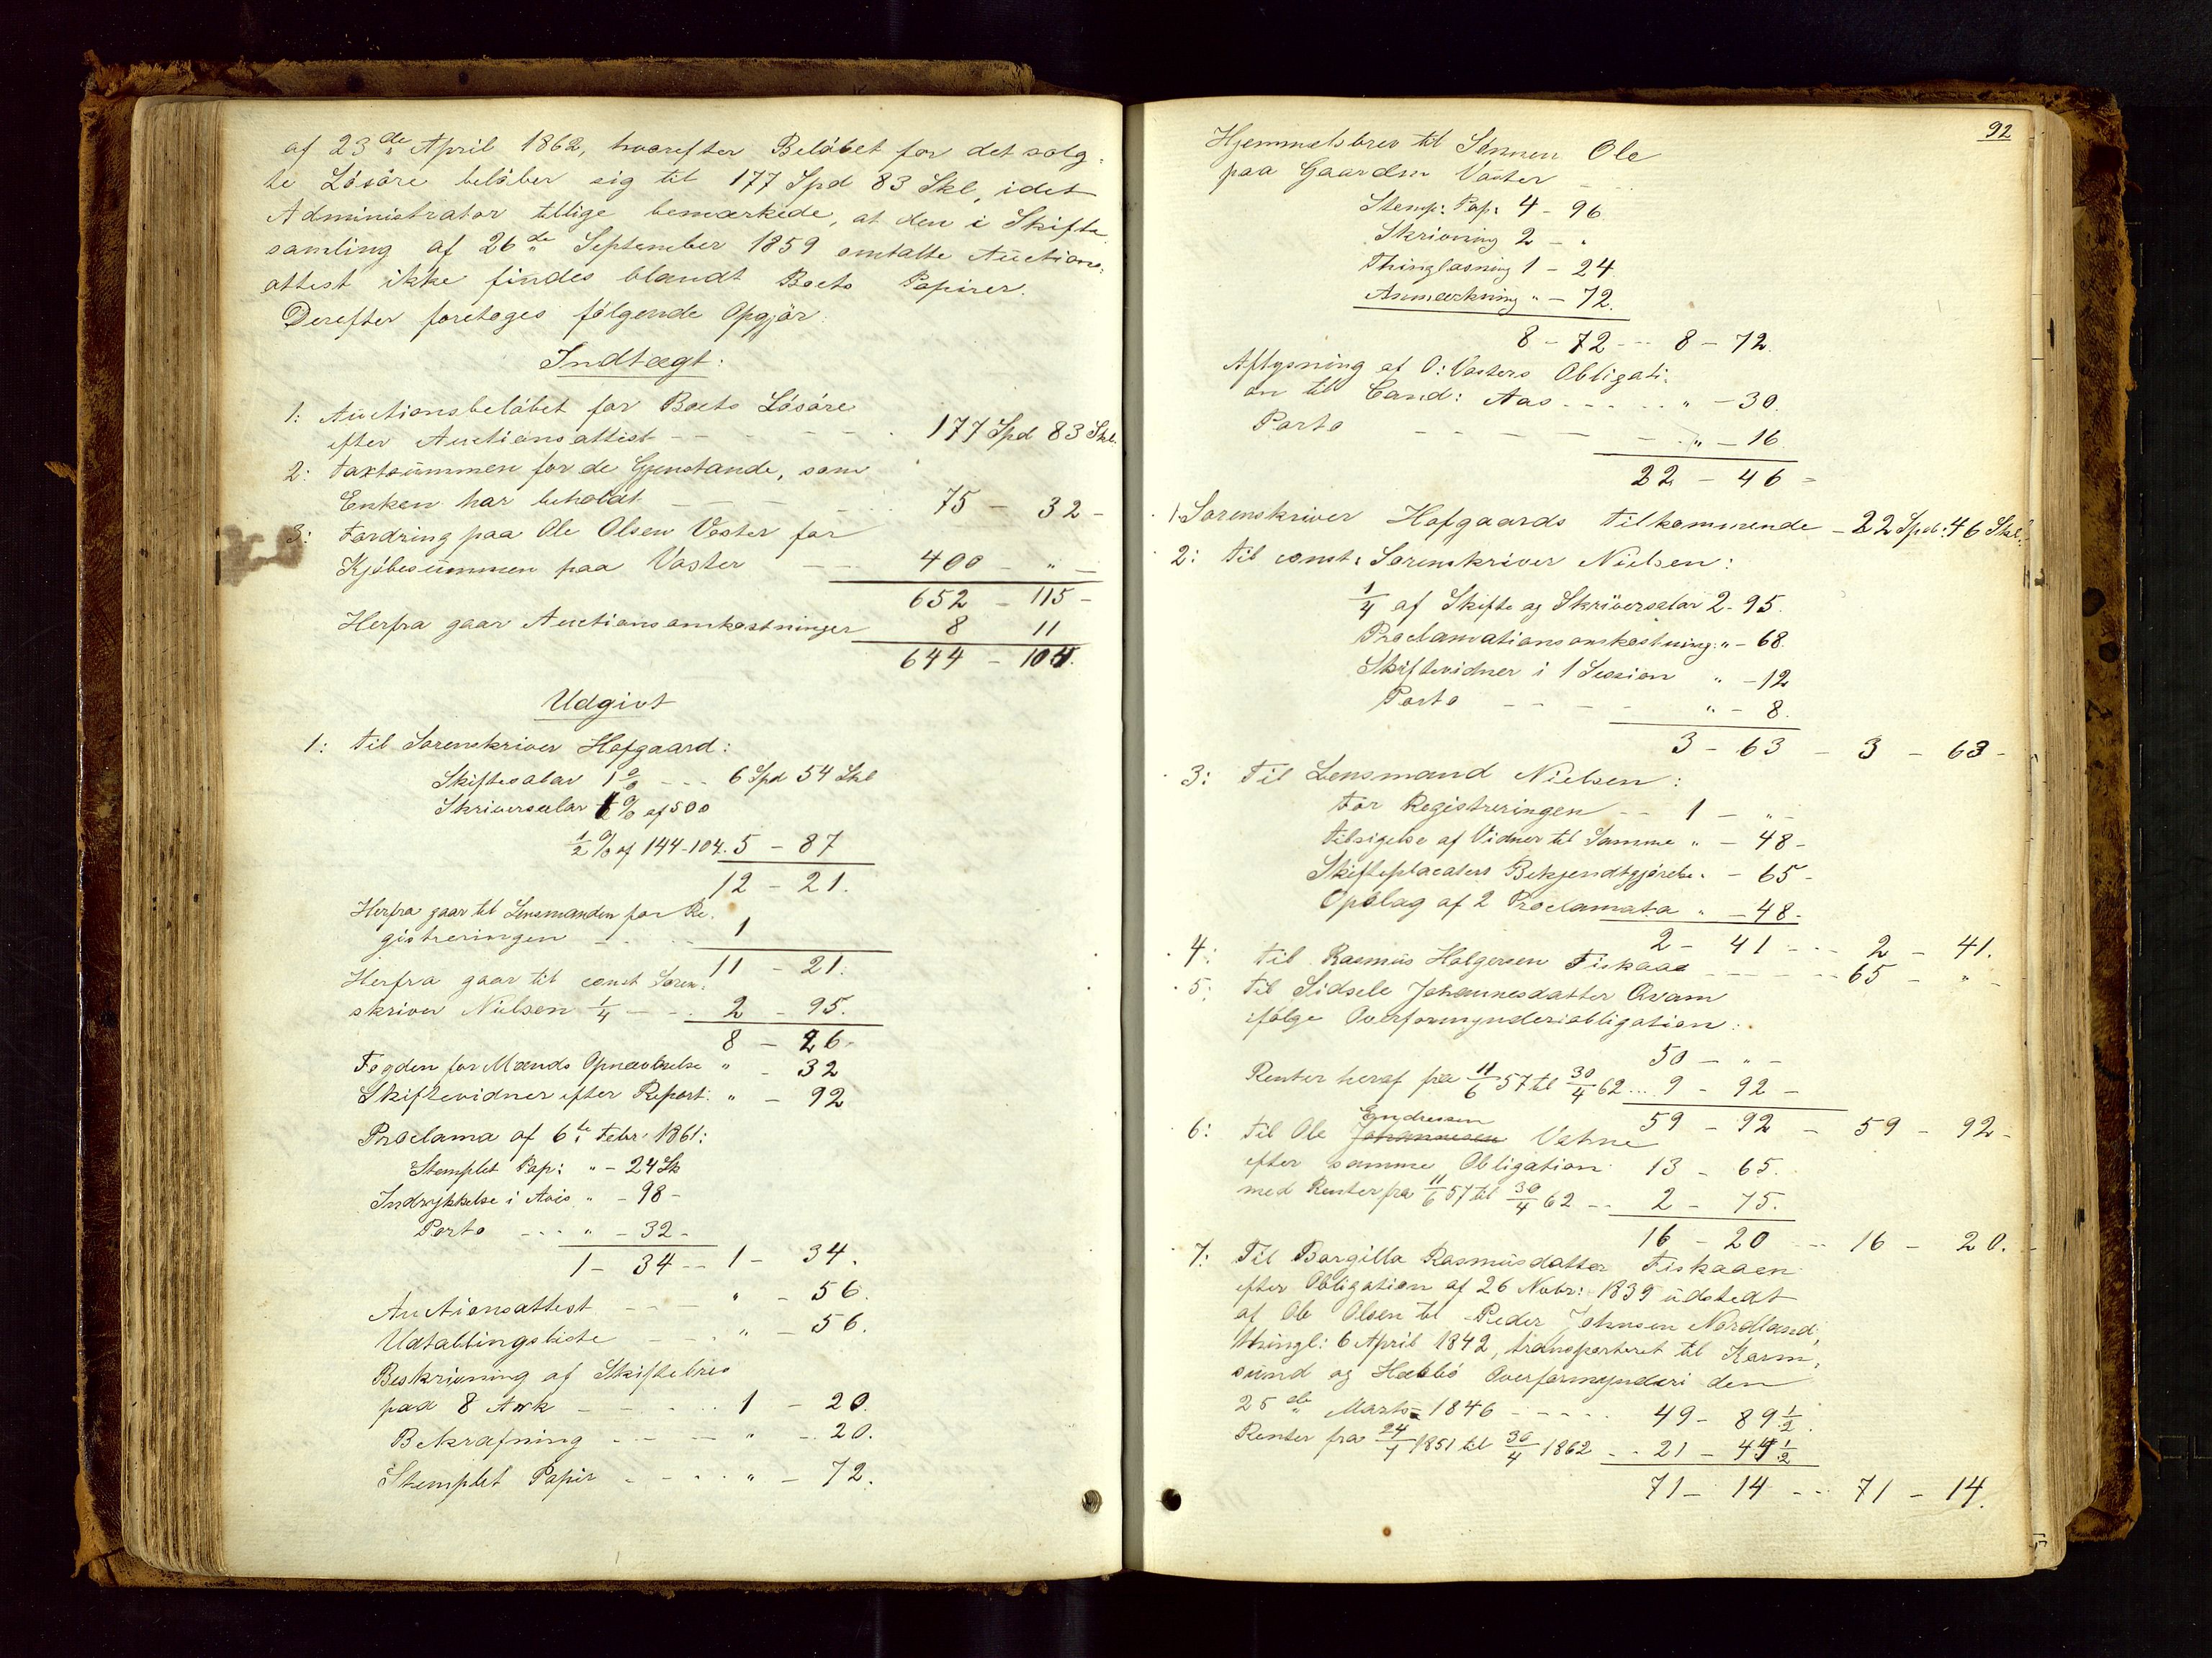 af 23de April 1862, hvorefter Beløbet for det solg-
te Løsøre beløber sig til 177 Spd 83 Skl, idet
Administrator tillige bemærkede, at den i Skifte
samling af 26de September 1859 omtalte Auctions-
attest ikke findes blandt Boets Papirer.
Derefter foretoges følgende Opgjør
Indtægt:
1: Auctionsbeløbet for Boets Løsøre
efter Auctionsattest - - - - 177 Spd 83 Skl.
2: Taxtsummen for de Gjenstande, som
Enken har beholdt - - - 75 - 32 -
3: Fordring paa Ole Olsen Vaster for
Kjøbesummen paa Vaster - - 400 - " -
652 - 115 -
Herfra gaar Auctionsomkostninger 8 11
644 - 104.
Udgivt
1: Til Sorenskriver Hofgaard:
Skiftesalær 1 % - - - 6 Spd 54 Skl
Skriversalær 1 % af 500
1/2 % af 144-104. 5 - 87
12 - 21.
Herfra gaar til Lensmanden for Re-
gistreringen - - - 1
11 - 21.
Herfra gaar til const Soren-
skriver Nielsen 1/4 - - - 2 - 95.
8 - 26.
Fogden for Mænds Opnævnelse " - 32
Skiftevidner efter Repart: " - 92
Proclama af 6te Febr: 1861:
Stemplet Pap: " - 24 Sk
Indrykkelse i Avis " - 98 -
Porto - - - " - 32 -
1 - 34 - - 1 - 34.
Auctionsattest - - - " - 56.
Udtallingsliste - - - " - 56.
Beskrivning af Skiftebrev
paa 8 Ark - - - - - 1 - 20.
Bekræfning - - - - " - 20.
Stemplet Papir - - - - " - 72.
92
Hjemmelsbrev til Sønnen Ole
paa Gaarden Vaster -
Stemp: Pap: 4 - 96
Skrivning 2 - "
Thinglæsning 1 - 24.
Anmærkning " - 72.
8 - 72 - - 8 - 72.
Aflysning af O: Vasters Obligati-
on til Cand: Aas - - - - " - 30.
Porto - - - - - " - 16
22 - 46 =
1. Sorenskriver Hofgaards Tilkommende - 22 Spd: 46 Skl.
2: Til const: Sorenskriver Nielsen:
1/4 af Skifte og Skriversalær 2 - 95.
Proclamationsomkostning: " - 68.
Skiftevidner i 1 Session " - 12
Porto - - - - " - 8.
3 - 63 - 3 - 63 -
3: Til Lensmand Nielsen:
For Registreringen - - 1 - " -
Tilsigelse af Vidner til Samme " - 48 -
Skifteplacaters Bekjendtgjørelse " - 65 -
Opslag af 2 Proclamata " - 48 -
2 - 41 - - - 2 - 41.
4: Til Rasmus Holgersen Fiskaae - - - - - 65 - " -
5: Til Sidsele Johannesdatter Qvam
ifølge Overformynderiobligation:
50 - " -
Renter heraf fra 11/6 57 til 30/4 62 ... 9 - 92 -
59 - 92 - 59 - 92 -
Endresen
6: Til Ole Johannesen Vatne
efter samme Obligation 13 - 65.
med Renter fra 11/6 57 til 30/4 62 - - 2 - 75.
16 - 20 - - 16 - 20.
7: Til Bargilla Rasmusdatter Fiskaaen
efter Obligation af 26 Novbr: 1839 udstedt
af Ole Olsen til Peder Johnsen Nordland,
thingl: 6 April 1842, transporteret til Karm-
sund og Hetlø Overformynderi den
25de Marts 1846 - - - - - 49 - 89 1/2.
Renter fra 24/4 1851 til 30/4 1862 - - 21 - 44 1/2
71 - 14 - - - 71 - 14.